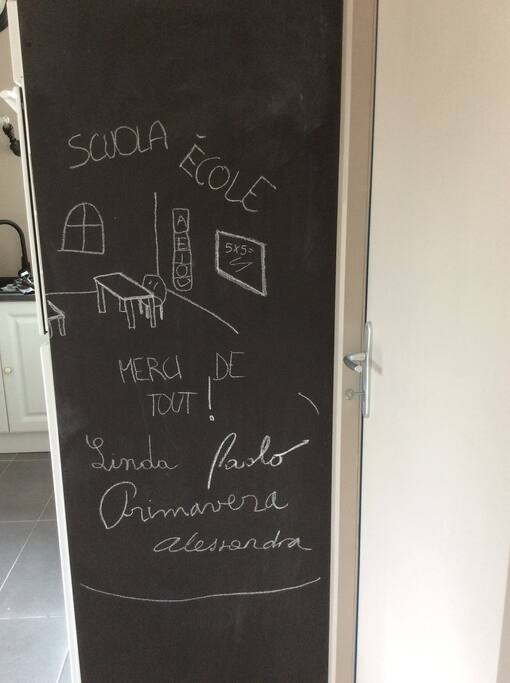 SCUOLA
ÈCOLE
A
E
I
O
U
5x5=
MERCI DE
TOUT!
Linda Paolo
Primavera
Alessandra